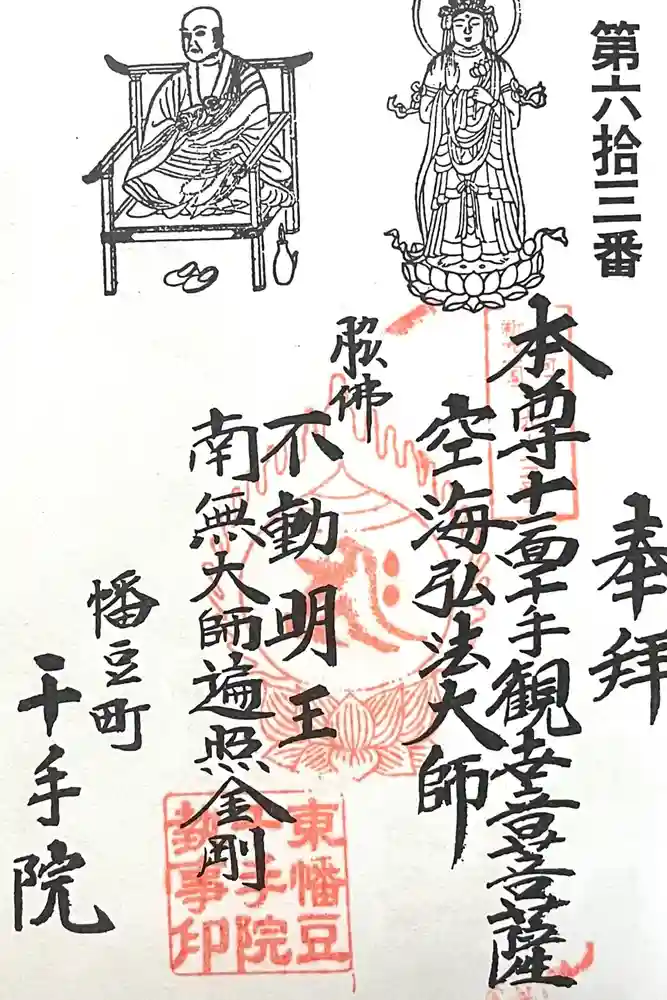 第六拾三番
奉拝
本尊十一面千手観世音菩薩
空海弘法大師
脇佛
不動明王
南無大師遍照金剛
幡豆町
千手院
東幡豆
千手院
執事印